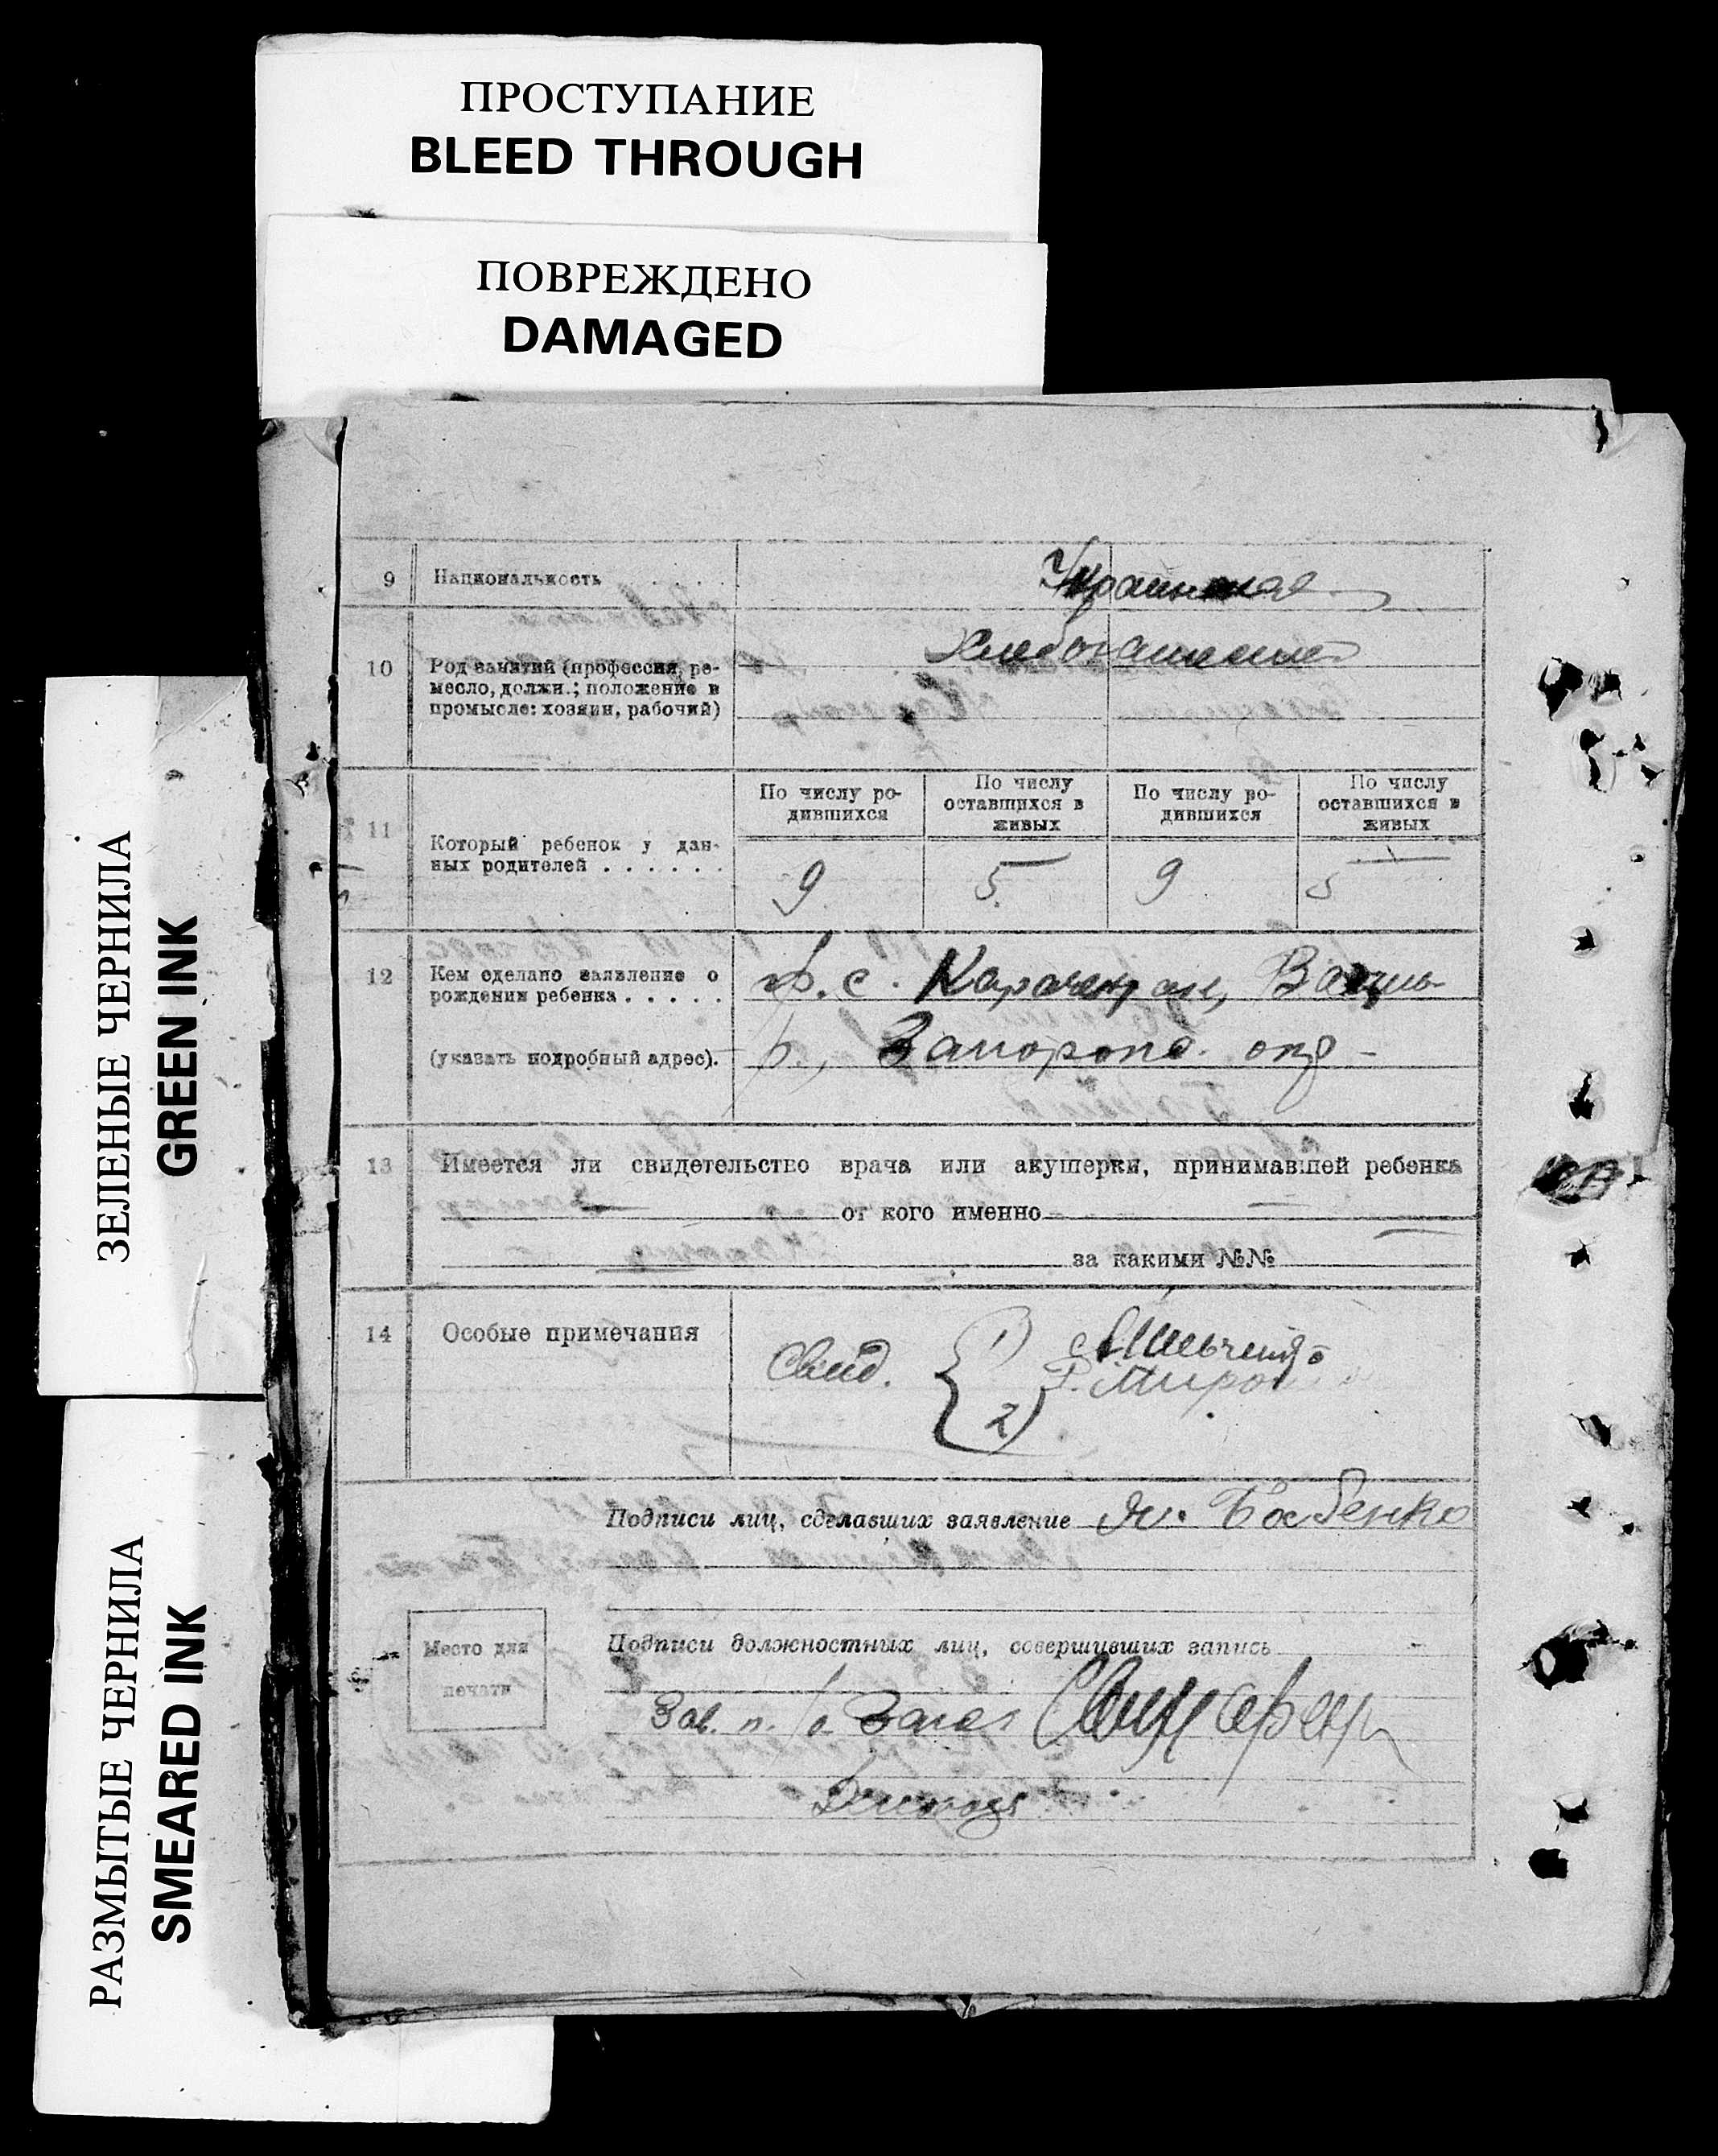 ПРОСТУПАНИЕ
BLEED THROUGH
ПОВРЕЖДЕНО
DAMAGED
ЗЕЛЕНЫЕ ЧЕРНИЛА
GREEN INK
РАЗМЫТЫЕ ЧЕРНИЛА
SMEARED INK
9 Национальность . . . . Украинская
10 Род занятий (профессия, ре-
месло, должн.; положение в
промысле: хозяин, рабочий)
Хлебопашеские
11 Который ребенок у дан-
ных родителей . . . . . .
По числу ро-
дившихся
По числу
оставшихся в
живых
По числу ро-
дившихся
По числу
оставшихся в
живых
9 5 9 5
12 Кем сделано заявление о
рождении ребенка . . . . .
(указать подробный адрес).
с. Карачекрак, Васил-
р., Запорож. окр-
13 Имеется ли свидетельство врача или акушерки, принимавшей ребенка
от кого именно
за какими №№
14 Особые примечания
Свид. 1)
2)
Подписи лиц, сделавших заявление
Место для
печати
Подписи должностных лиц, совершивших запись
Зав. п/о Загс